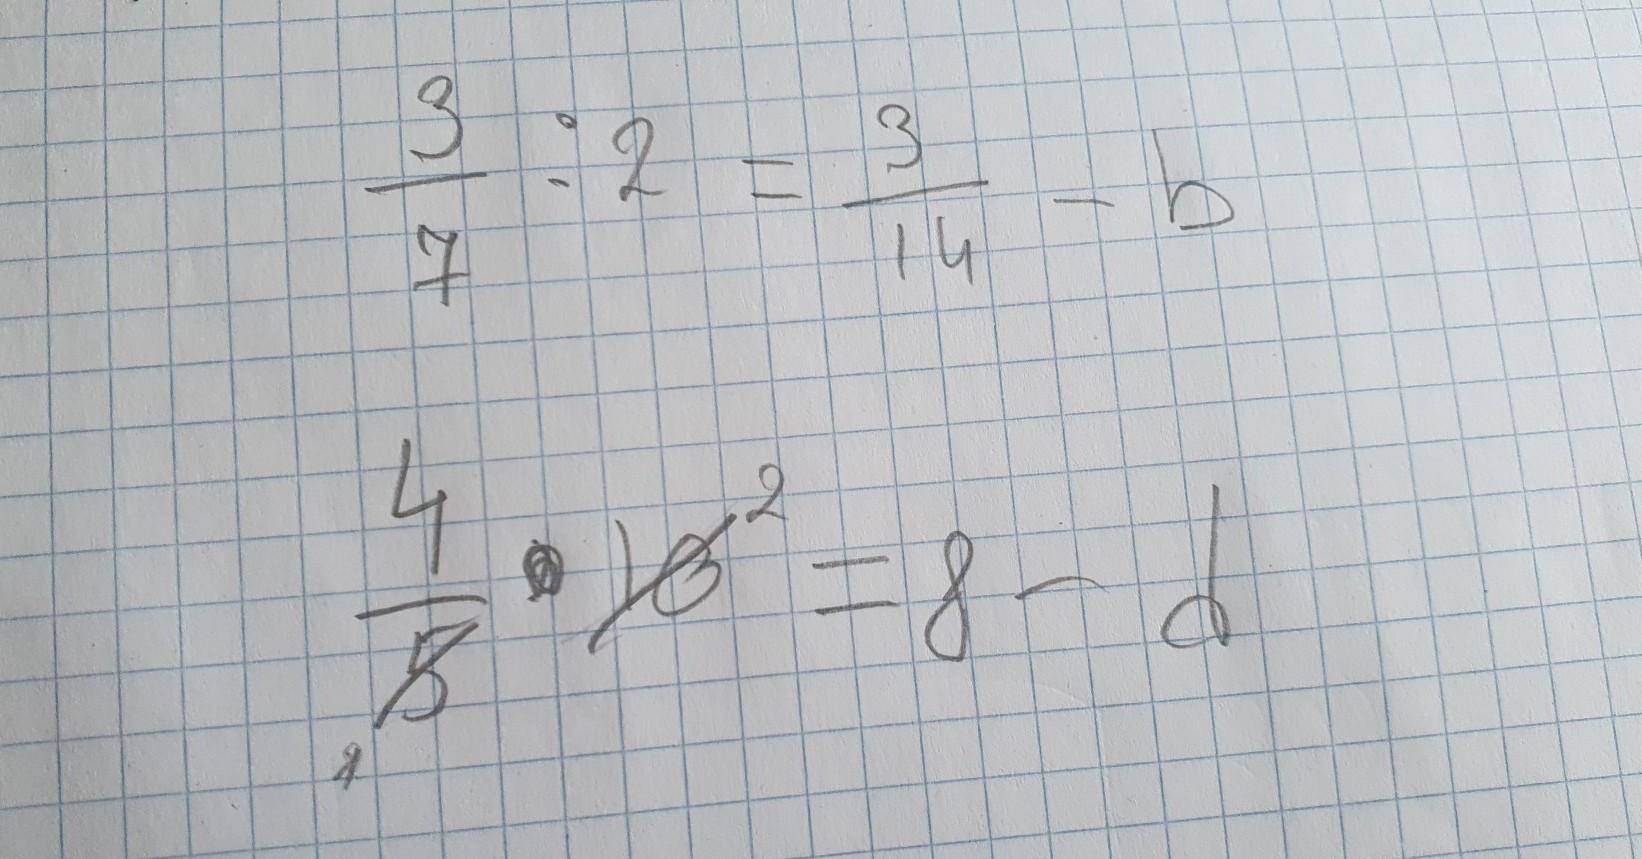 3/7 : 2 = 3/14 - b
4/5 • 10 2 = 8 - d
1